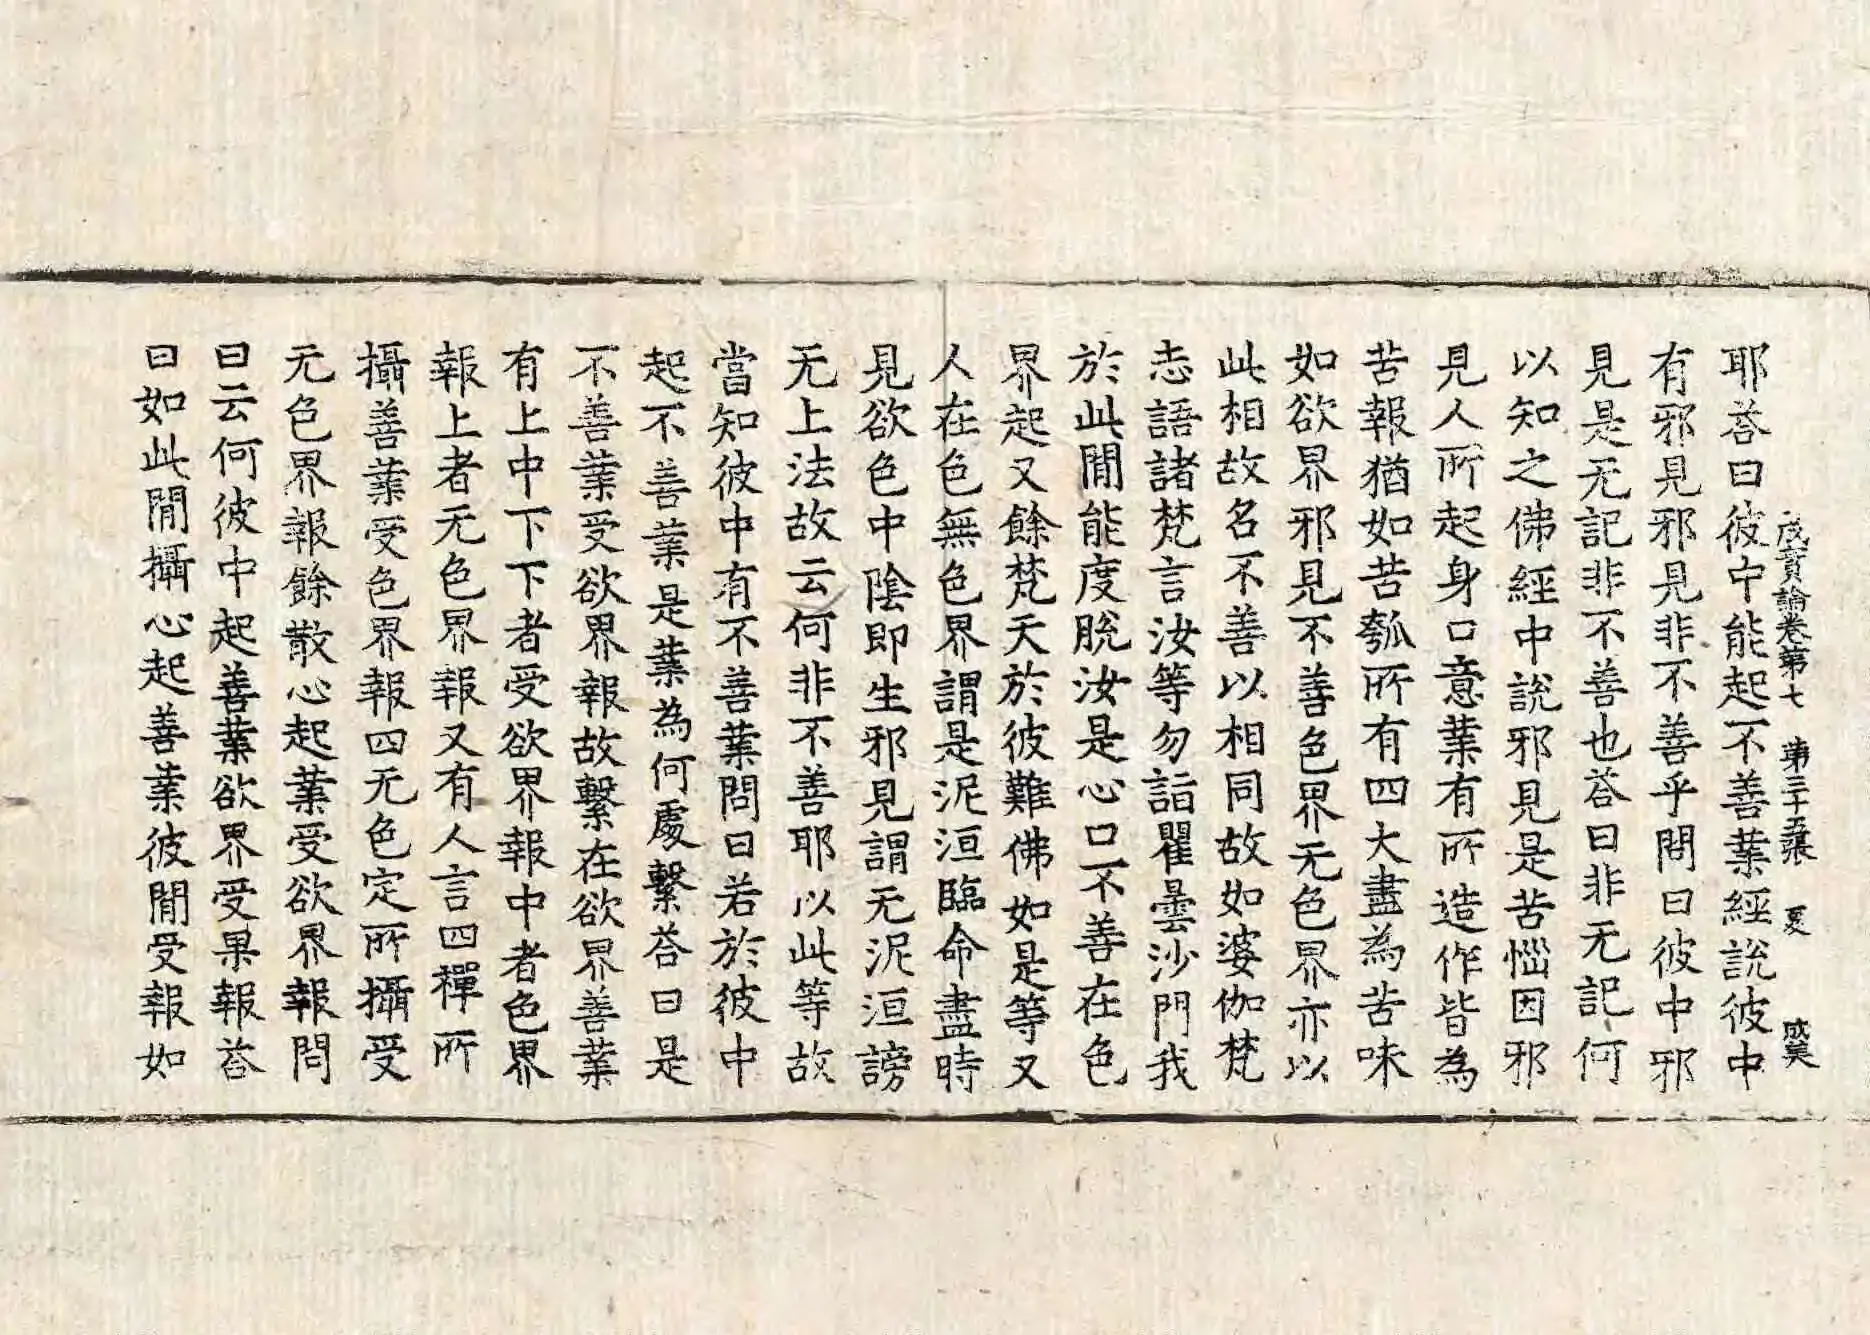 成實論卷第七 第三十五張 夏 咸美
耶荅曰彼中能起不善業經說彼中
有邪見邪見非不善乎問曰彼中邪
見是无記非不善也荅曰非无記何
以知之佛經中說邪見是苦惱因邪
見人所起身口意業有所造作皆為
苦報猶如苦瓠所有四大盡為苦味
如欲界邪見不善色界无色界亦以
此相故名不善以相同故如婆伽梵
志語諸梵言汝等勿詣瞿曇沙門我
於此閒能度脫汝是心口不善在色
界起又餘梵天於彼難佛如是等又
人在色無色界謂是泥洹臨命盡時
見欲色中陰即生邪見謂无泥洹謗
无上法故云何非不善耶以此等故
當知彼中有不善業問曰若於彼中
起不善業是業為何處繫荅曰是
不善業受欲界報故繫在欲界善業
有上中下下者受欲界報中者色界
報上者无色界報又有人言四禪所
攝善業受色界報四无色定所攝受
无色界報餘散心起業受欲界報問
曰云何彼中起善業欲界受果報荅
曰如此閒攝心起善業彼閒受報如